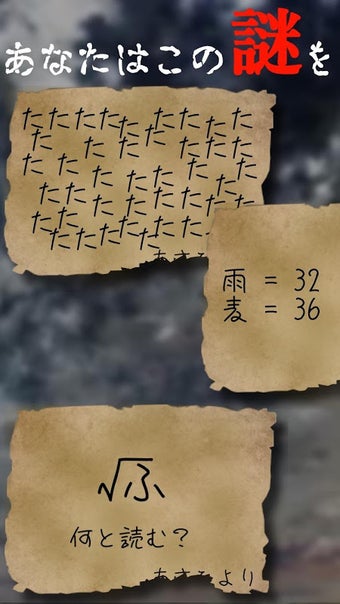 あなたはこの謎を
たたたたたたたたた
たたたたたたた
たたたたたたた
たたたたたたた
たたたたたたた
たたたたた
雨 = 32
麦 = 36
√ふ
何と読む?
より